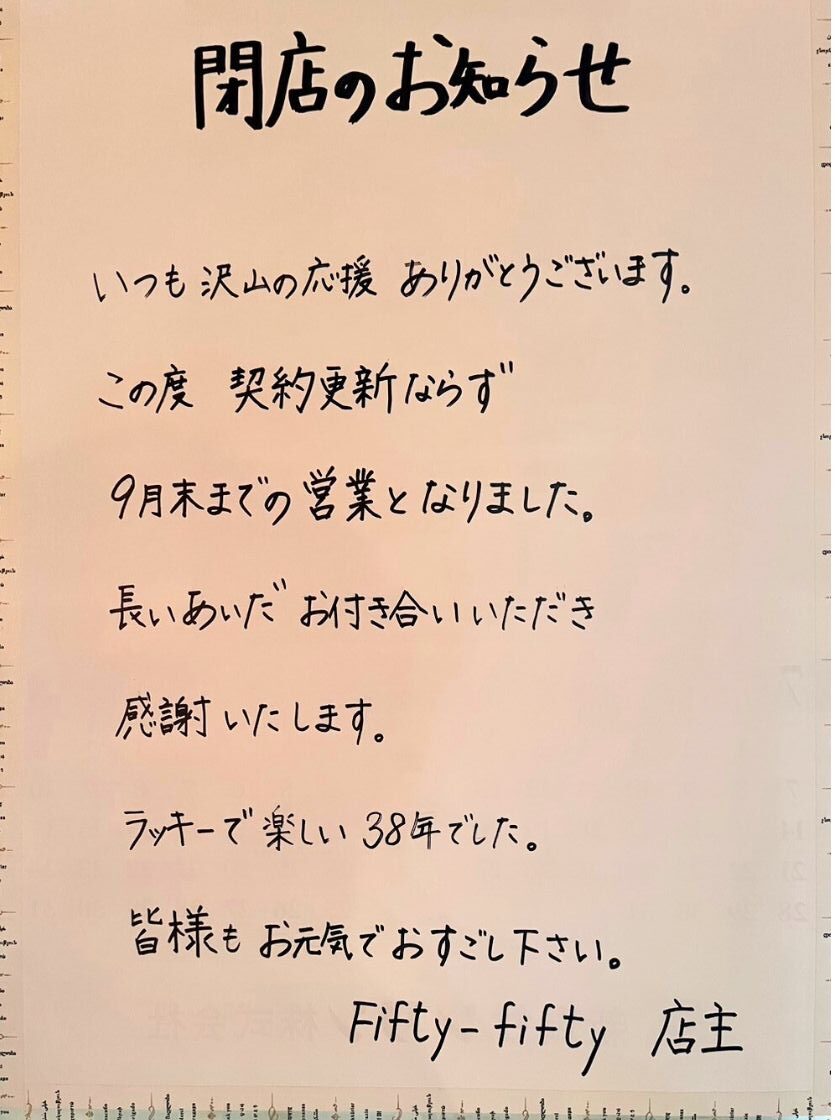 閉店のお知らせ
いつも沢山の応援 ありがとうございます。
この度 契約更新ならず
9月末までの営業となりました。
長いあいだ お付き合いいただき
感謝いたします。
ラッキーで楽しい38年でした。
皆様も お元気でおすごし下さい。
Fifty-fifty 店主